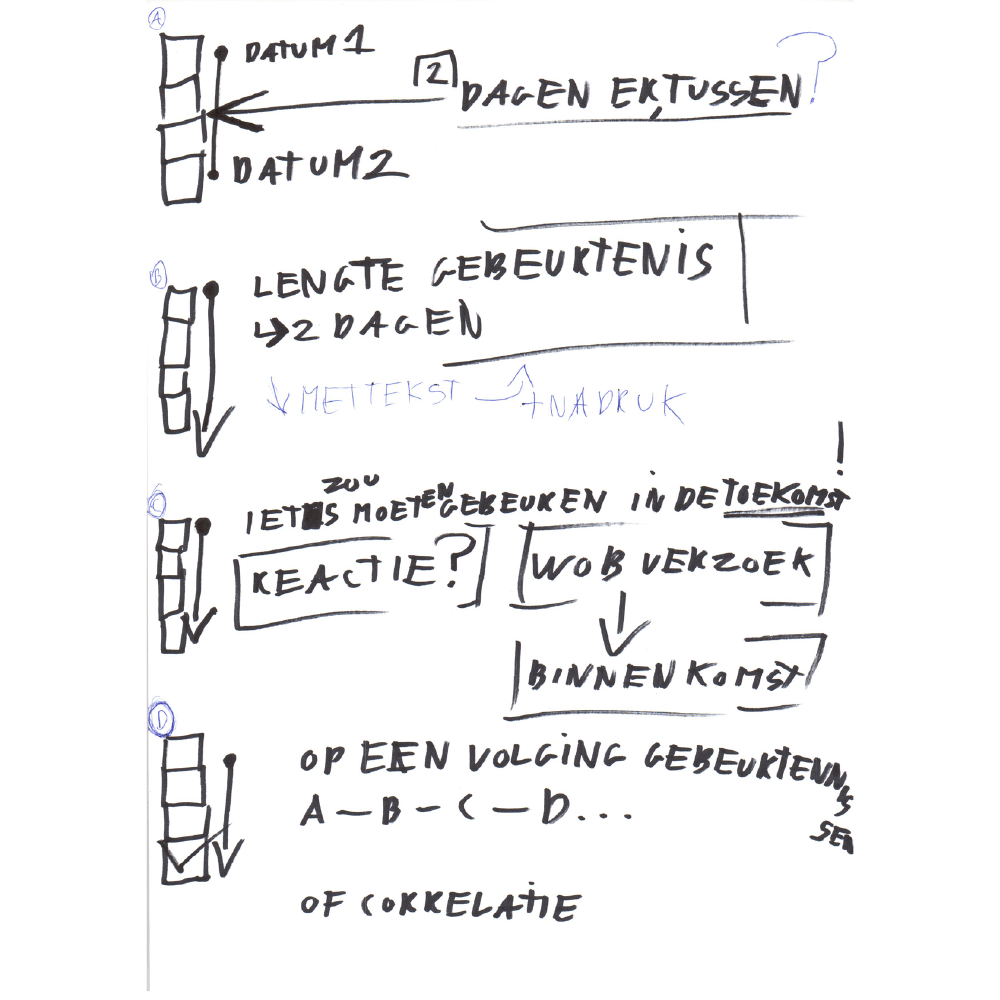 A
DATUM 1
2 DAGEN ERTUSSEN?
DATUM 2
B
LENGTE GEBEURTENIS
↳ 2 DAGEN
↓ MET TEKST + NADRUK
C
ZOU
IETS MOETEN GEBEUREN IN DE TOEKOMST!
REACTIE? WOB VERZOEK
↓
BINNENKOMST
D
OP EEN VOLGING GEBEURTENNIS
SEN
A – B – C – D...
OF CORRELATIE